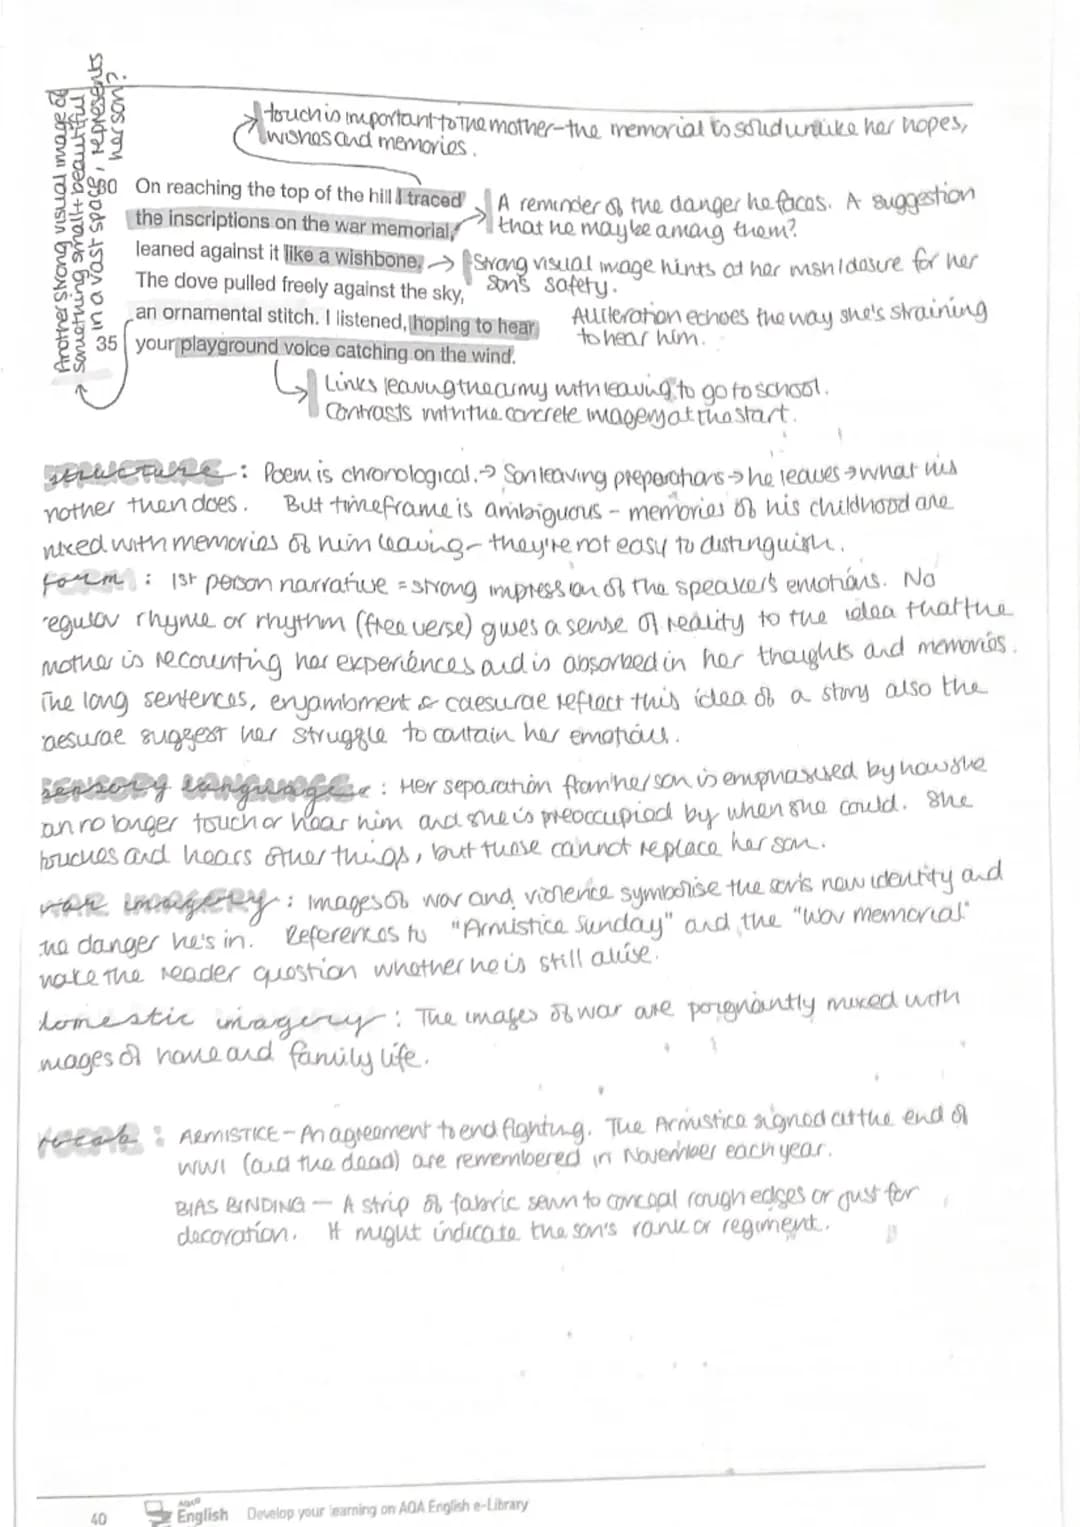 Another strong visual image of
something small + beautiful
in a vast space, represents
her son?
touch is important to the mother-the memorial is solid unlike her hopes,
wishes and memories.
30 On reaching the top of the hill I traced
the inscriptions on the war memorial,
leaned against it like a wishbone.
The dove pulled freely against the sky,
an ornamental stitch. I listened, hoping to hear
35 your playground voice catching on the wind.
A reminder of the danger he faces. A suggestion
that he may be among them?
Strong visual image hints at her wish/desire for her
son's safety.
Alliteration echoes the way she's straining
to hear him.
Links leaving the army with leaving to go to school.
Contrasts with the concrete imagery at the start.
structure : Poem is chronological.→ Son leaving preparations→he leaves→what his
mother then does. But timeframe is ambiguous - memories of his childhood are
mixed with memories of him leaving - they're not easy to distinguish.
form : 1st person narrative = strong impression of the speaker's emotions. No
regular rhyme or rhythm (free verse) gives a sense of reality to the idea that the
mother is recounting her experiences and is absorbed in her thoughts and memories.
The long sentences, enjambment & caesurae reflect this idea of a story also the
caesurae suggest her struggle to contain her emotions.
sensory language : Her separation from her son is emphasised by how she
can no longer touch or hear him and she is preoccupied by when she could. She
touches and hears other things, but those cannot replace her son.
war imagery : Images of war and violence symbolise the son's new identity and
the danger he's in. References to "Armistice Sunday" and the "war memorial"
make the reader question whether he is still alive.
domestic imagery : The images of war are poignantly mixed with
images of home and family life.
vocab : ARMISTICE - An agreement to end fighting. The Armistice signed at the end of
WW1 (and the dead) are remembered in November each year.
BIAS BINDING - A strip of fabric sewn to conceal rough edges or just for
decoration. It might indicate the son's rank or regiment.
40 AQA English Develop your learning on AQA English e-Library